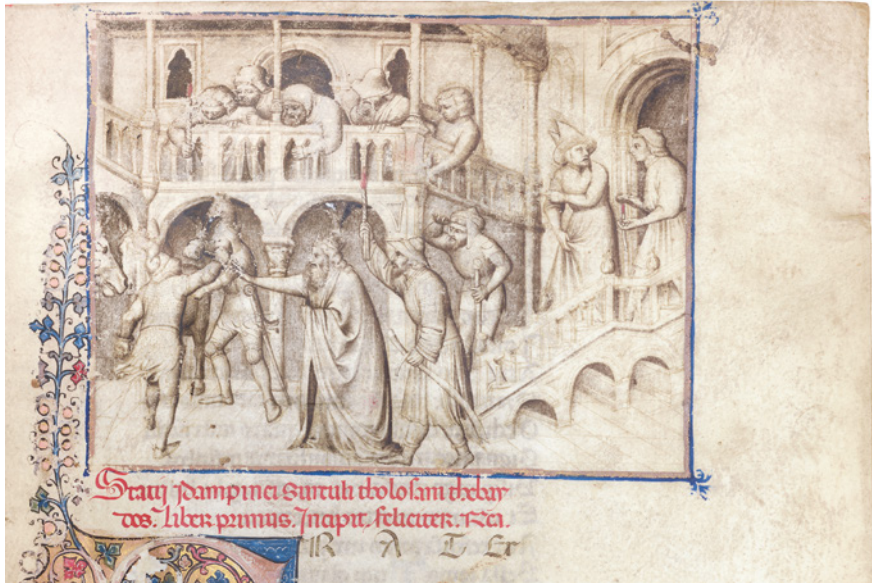 Statii Pampinei Surculi tholosani thebay
dos. liber primus. Incipit. feliciter. Rca.
R A T Er